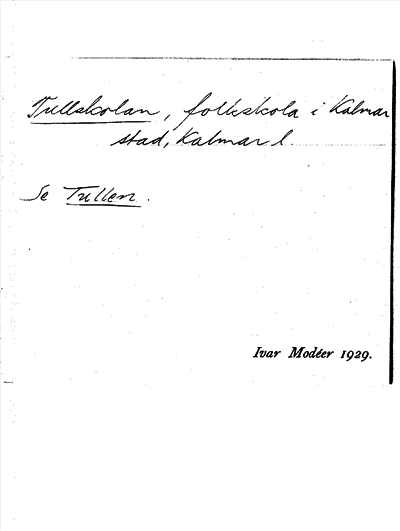 Tullskolan, folkskola i Kalmar
stad, Kalmar l.
Se Tullen.
Ivar Modéer 1929.